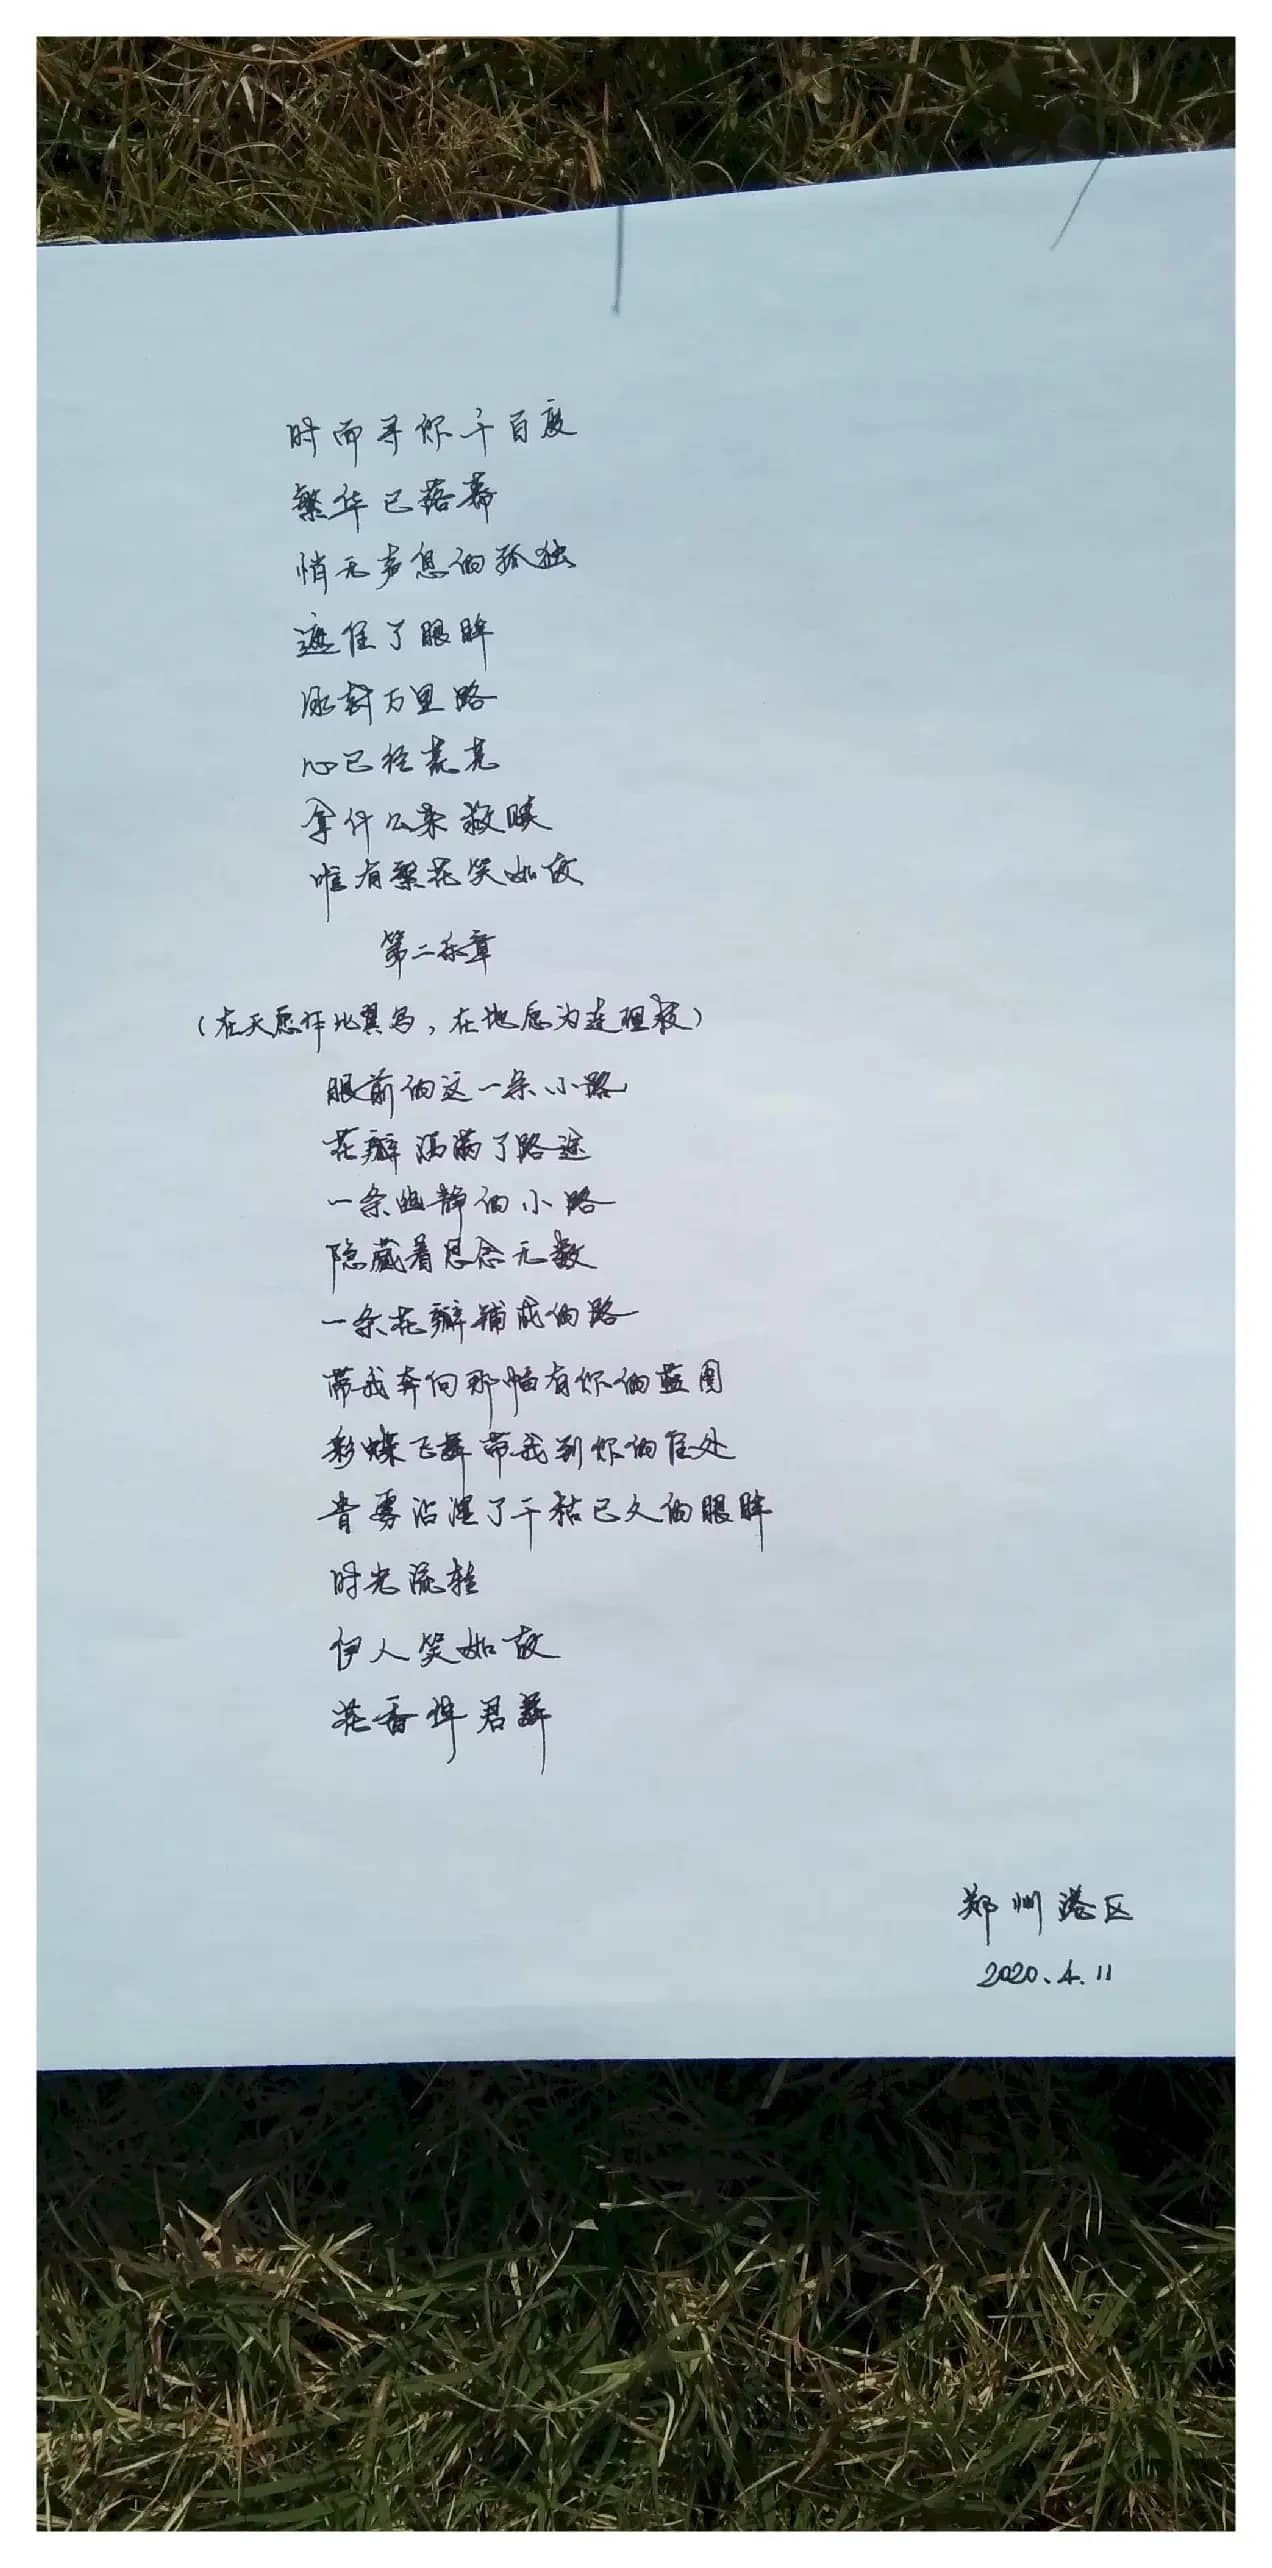 时而寻你千百度
繁华已落幕
悄无声息的孤独
遮住了眼眸
冰封万里路
心已经荒芜
拿什么来救赎
唯有繁花笑如故
第二乐章
（在天愿作比翼鸟，在地愿为连理枝）
眼前的这一条小路
花瓣洒满了路途
一条幽静的小路
隐藏着思念无数
一条花瓣铺成的路
带我奔向那幅有你的蓝图
彩蝶飞舞带我到你的住处
雾沾湿了干枯已久的眼眸
时光流转
伊人笑如故
花香伴君舞
郑州港区
2020.4.11